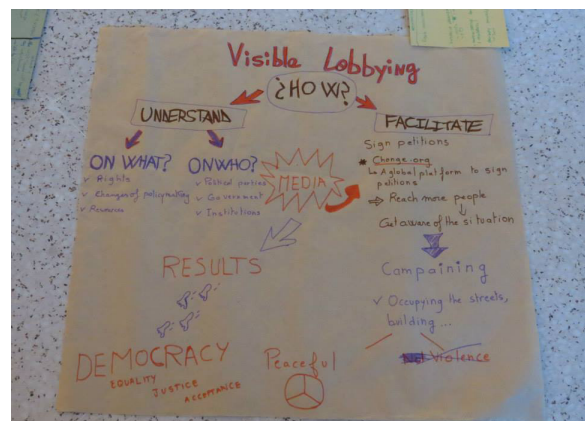 Visible Lobbying
¿HOW?
UNDERSTAND
ON WHAT?
✓ Rights
✓ Changes of policymaking
✓ Resources
ON WHO?
✓ Political parties
✓ Government
✓ Institutions
MEDIA
FACILITATE
Sign petitions
* Change.org
↳ A global platform to sign
petitions
⇒ Reach more people
↓
Get aware of the situation
Campaining
✓ Occupying the streets,
building ...
RESULTS
DEMOCRACY
EQUALITY
JUSTICE
ACCEPTANCE
Peaceful
Violence